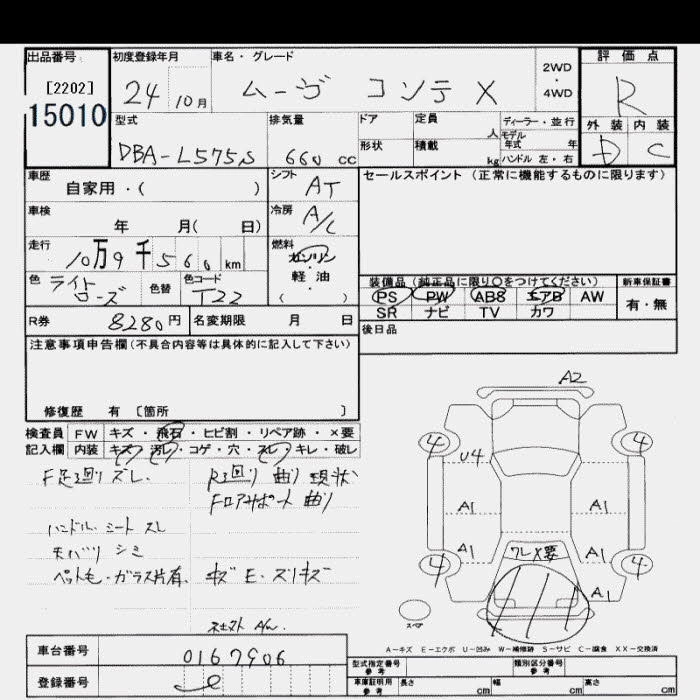 出品番号 初度登録年月 車名・グレード 2WD・4WD 評価点
[2202] 15010 24 10月 ムーヴ コンテ X R
型式 排気量 ドア 定員 人 ディーラー・並行 外装 内装
DBA-L575S 660 cc 形状 積載 kg モデル年式 年 ハンドル 左・右 D C
車歴 シフト セールスポイント (正常に機能するものに限ります)
自家用・( ) AT
車検 冷房
年 月( 日) A/C
走行 燃料
10万9千560km ガソリン・軽・油 ( )
色 ライトローズ 色替 色コード T22
装備品 (純正品に限り○をつけてください) 新車保証書
PS PW ABS エアB AW 有・無
SR ナビ TV カワ
R券 8280円 名変期限 月 日
後日品
注意事項申告欄(不具合内容等は具体的に記入して下さい)
修復歴 有 [箇所 ]
検査員 FW キズ・飛石・ヒビ割・リペア跡・×要
記入欄 内装 キズ・汚レ・コゲ・穴・スレ・キレ・破レ
F足回りズレ R回り 曲り 現状
Fロアサポート 曲り
ハンドル・シート スレ
天バリ シミ
ペット毛・ガラス片有 キズE・スリキズ
A2
4 4
U4
A1 A1
A1 A1
ワレX要
4 4
A1
スペア
A-キズ E-エクボ U-凹み W-補修跡 S-サビ C-腐食 XX-交換済
車台番号 0167906
登録番号
型式指定番号 参考 類別区分番号 参考
車庫証明用 参考 長さ cm 幅 cm 高さ cm